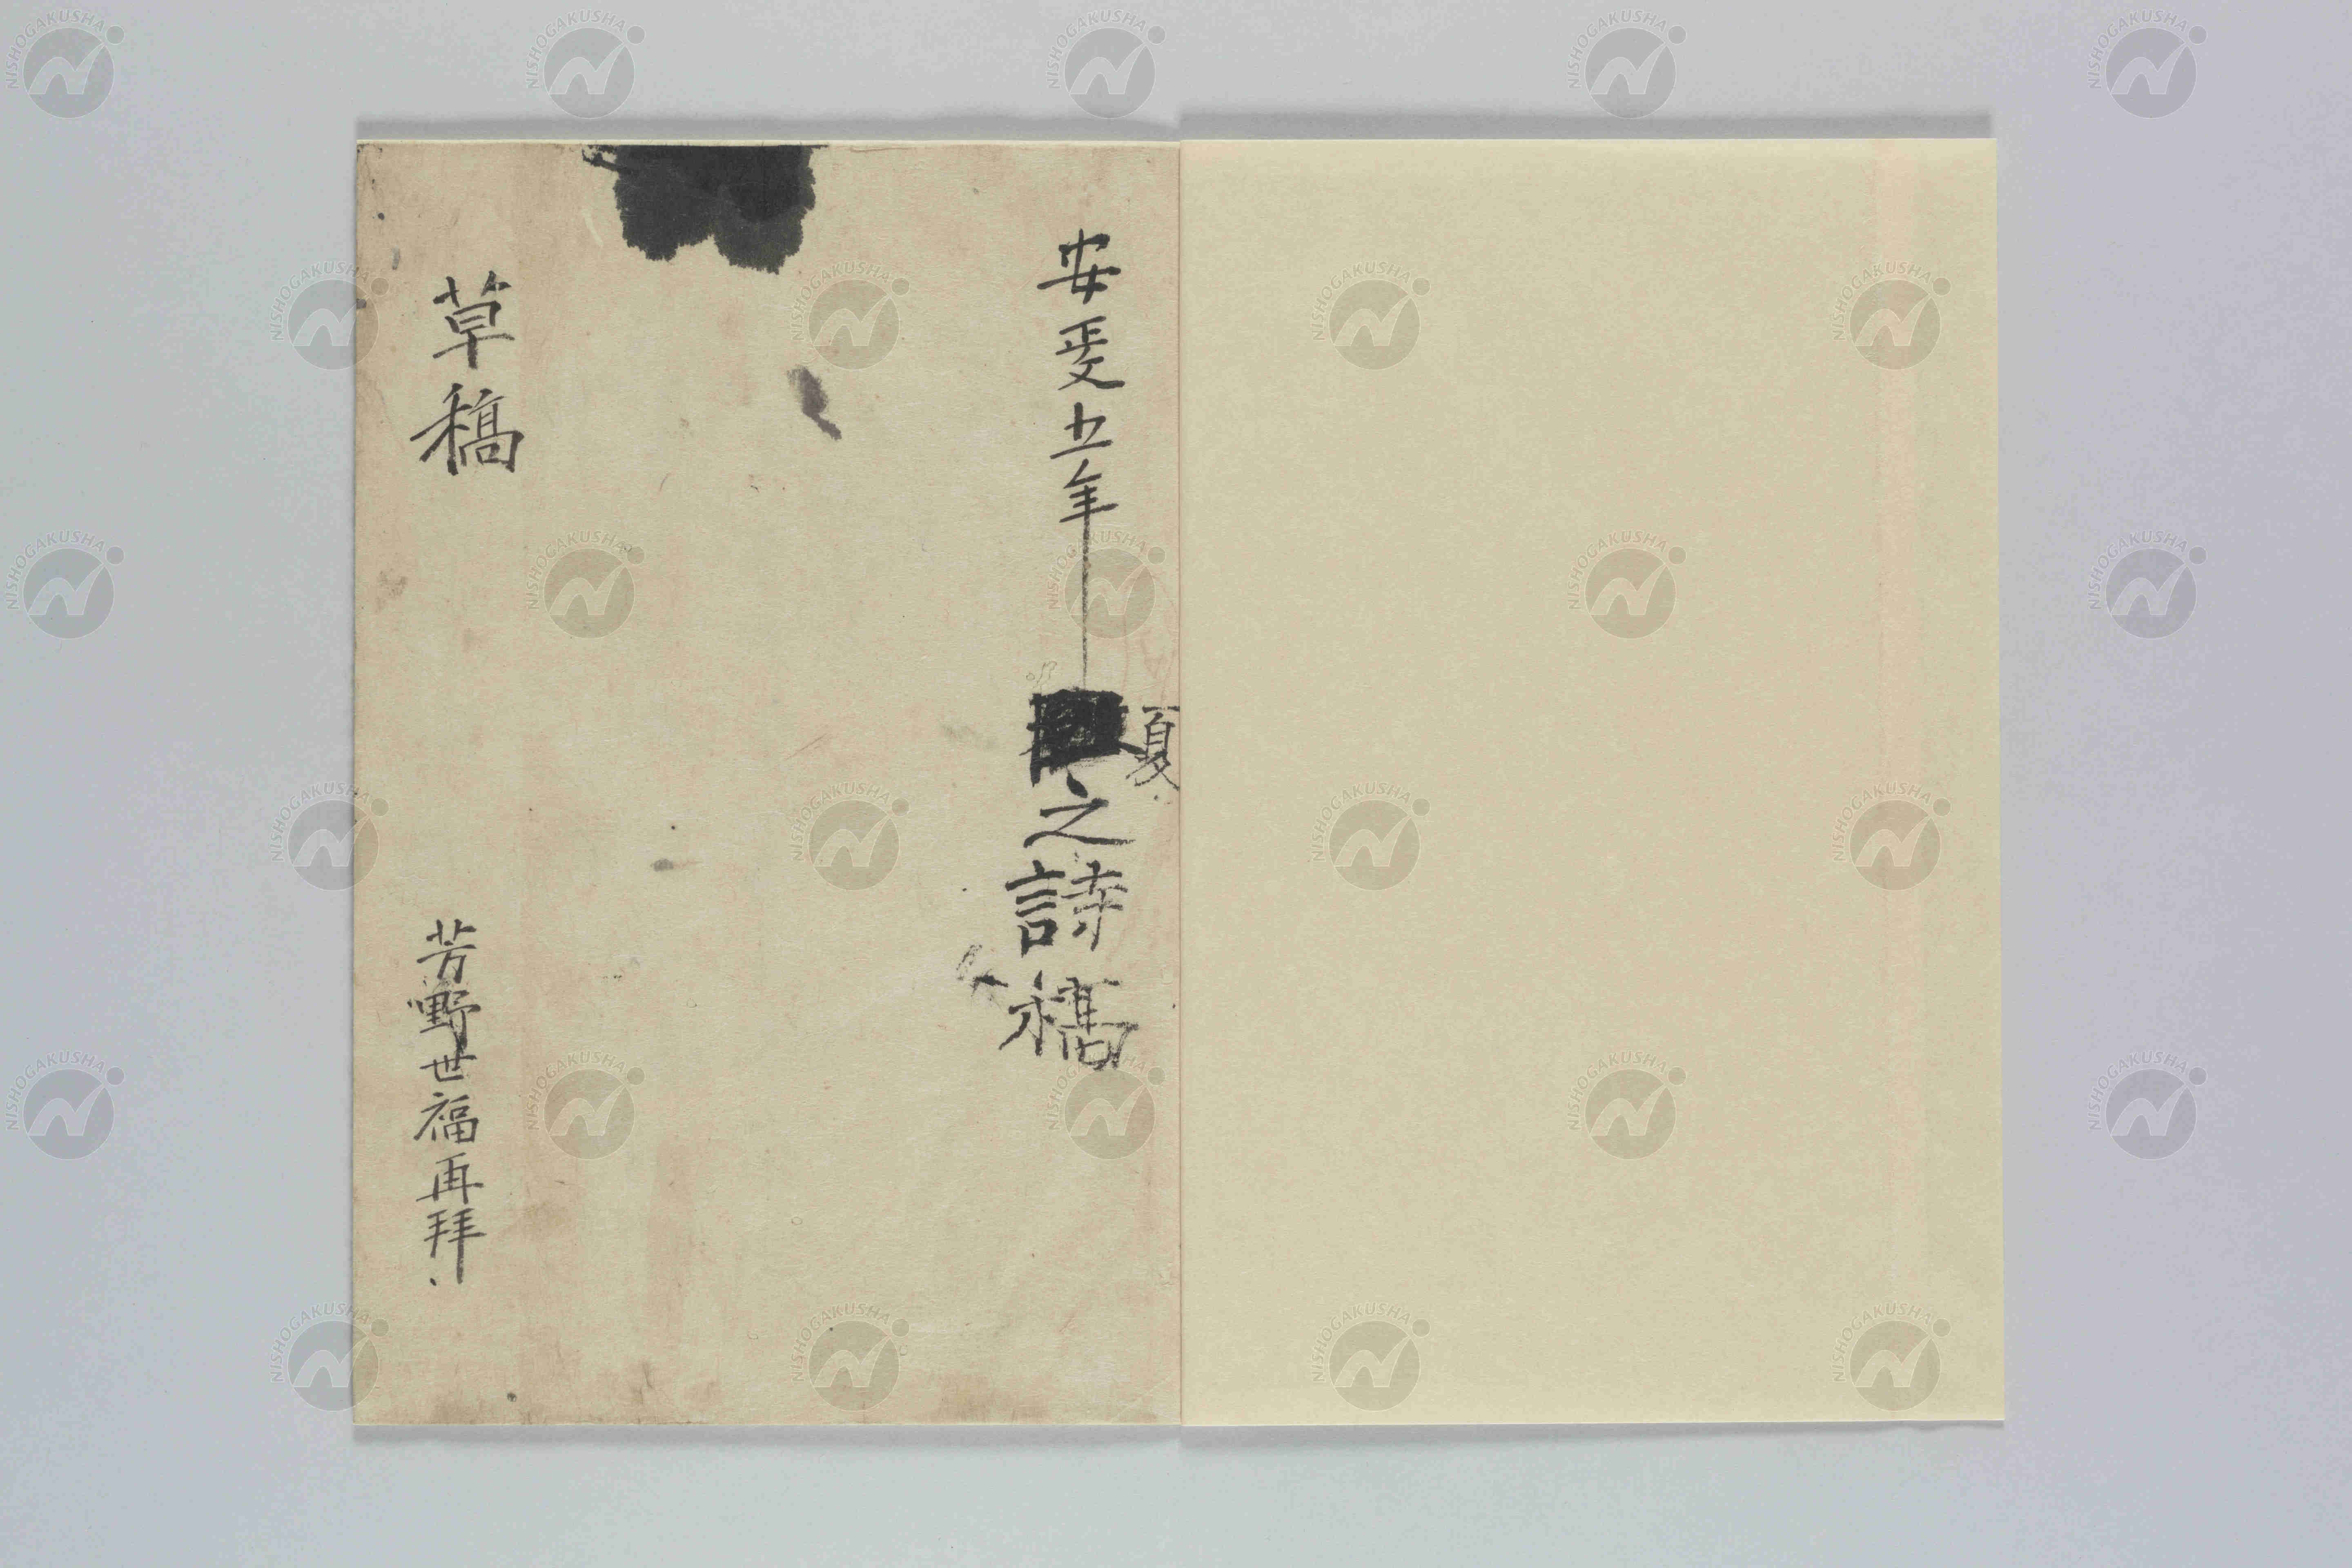 安政五年
夏
之詩稿
草稿
芳野世福再拜
NISHOGAKUSHA